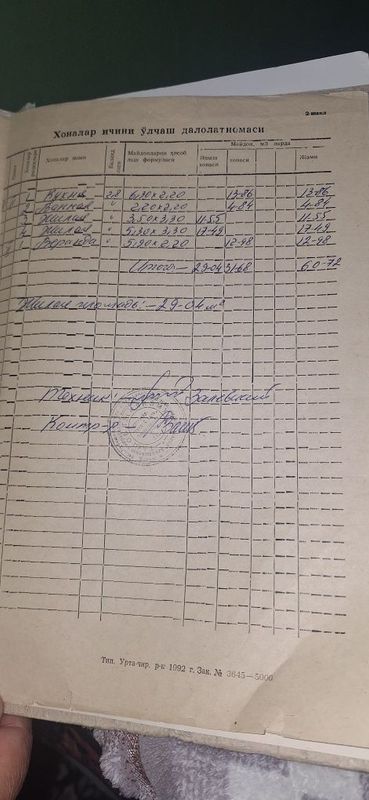 2-шакл
Хоналар ичини ўлчаш далолатномаси
Хоналар номи
Майдонларни ҳисоблаш формуласи
Майдон, м2 ларда
Яшаш хонаси
Жами
1 Кухня 2.8 6.30×2.20 13-86 13-86
2 Ванная " 2.20×2.20 4-84 4-84
3 Жилая " 3.50×3.30 11-55 11-55
4 Жилая " 5.30×3.30 17-49 17-49
1 Веранда " 5.90×2.20 12-98 12-98
Итого — 29-04 31-68 60-72
Жилая площадь: — 29-04 м²
Техник: —
Контр-р —
Тип. Урта-чир. р-к 1992 г. Зак. № 3645—5000